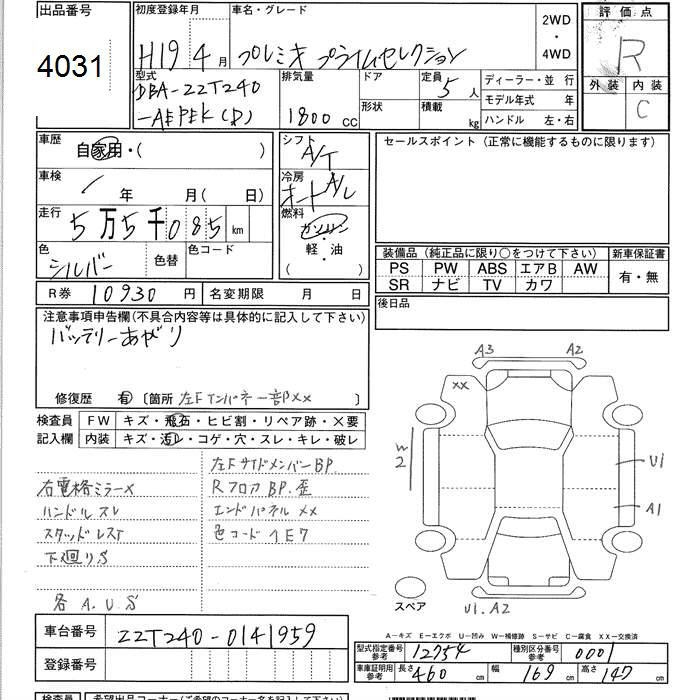 出品番号
4031
初度登録年月
H19 4月
車名・グレード
プレミオ プライムセレクション
2WD
・
4WD
評価点
R
外装 内装
C
型式
DBA-ZZT240
-AEPEK(D)
排気量
1800 CC
ドア
形状
定員
5人
積載
kg
ディーラー・並 行
モデル年式 年
ハンドル 左・右
車歴
自家用・( )
シフト
A/T
車検
年 月(日)
冷房
オートA/C
走行
5万5千085km
燃料
ガソリン
・
軽・油
( )
色
シルバー
色替
色コード
R券 10930円
名変期限 月 日
セールスポイント(正常に機能するものに限ります)
装備品(純正品に限り○をつけて下さい)
PS PW ABS エアB AW
SR ナビ TV カワ
新車保証書
有・無
後日品
注意事項申告欄(不具合内容等は具体的に記入して下さい)
バッテリーあがり
修復歴 有 〔箇所 左Fインパネ一部XX 〕
検査員
記入欄
FW キズ・飛石・ヒビ割・リペア跡・×要
内装 キズ・汚レ・コゲ・穴・スレ・キレ・破レ
左FサイドメンバーBP.
右電格ミラーX
RフロアBP.歪
ハンドルスレ
エンドパネルXX
スタッドレスT
色コード1E7
下廻りS
各A.U.S
A3 A2
XX
W2
U1
A1
スペア
U1.A2
車台番号 ZZT240-0141959
登録番号
A-キズ E-エクボ U-凹み W-補修跡 S-サビ C-腐食 XX-交換済
型式指定番号
参考
12754
種別区分番号
参考
0001
車庫証明用
参考
長さ 460 cm 幅 169 cm 高さ 147 cm
検査員
希望出品コーナー(ご希望のコーナー名を記入して下さい)